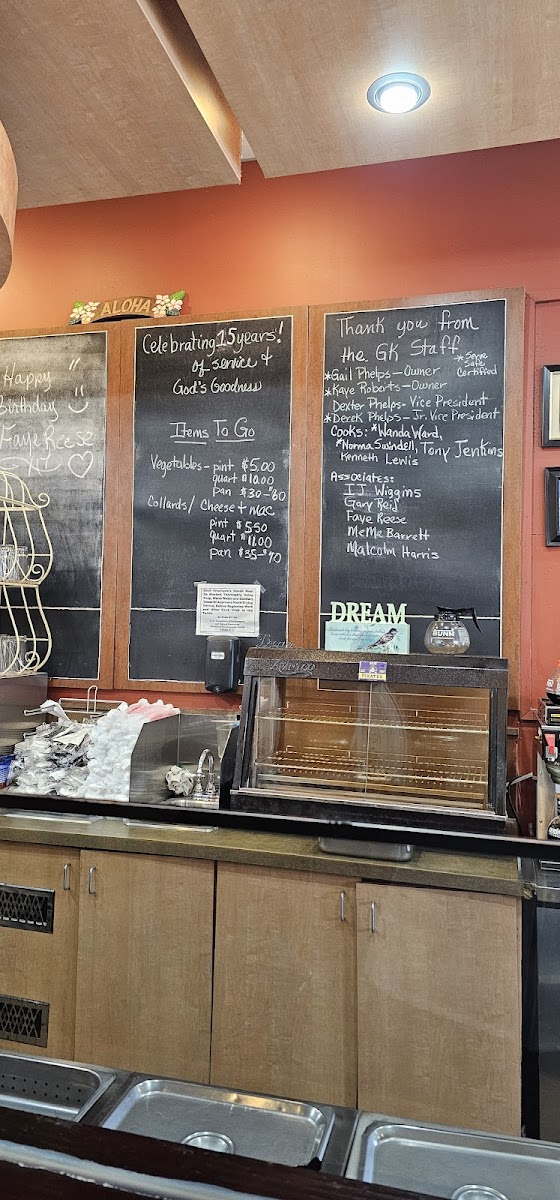 ALOHA
Happy
Birthday
Faye Reese
Celebrating 15 years!
of service &
God's Goodness
Items To Go
Vegetables - pint $5.00
quart $10.00
pan $30-$60
Collards/Cheese + mac
pint $5.50
quart $11.00
pan $35-$70
Thank you from
the GK Staff
*Serve
Safe
Certified
*Gail Phelps - Owner
*Kaye Roberts - Owner
Dexter Phelps - Vice President
*Derek Phelps - Jr. Vice President
Cooks: *Wanda Ward,
*Norma Swindell, Tony Jenkins
Kenneth Lewis
Associates:
IJ Wiggins
Gary Reid
Faye Reese
MeMe Barrett
Malcolm Harris
DREAM
BUNN
PIRATES